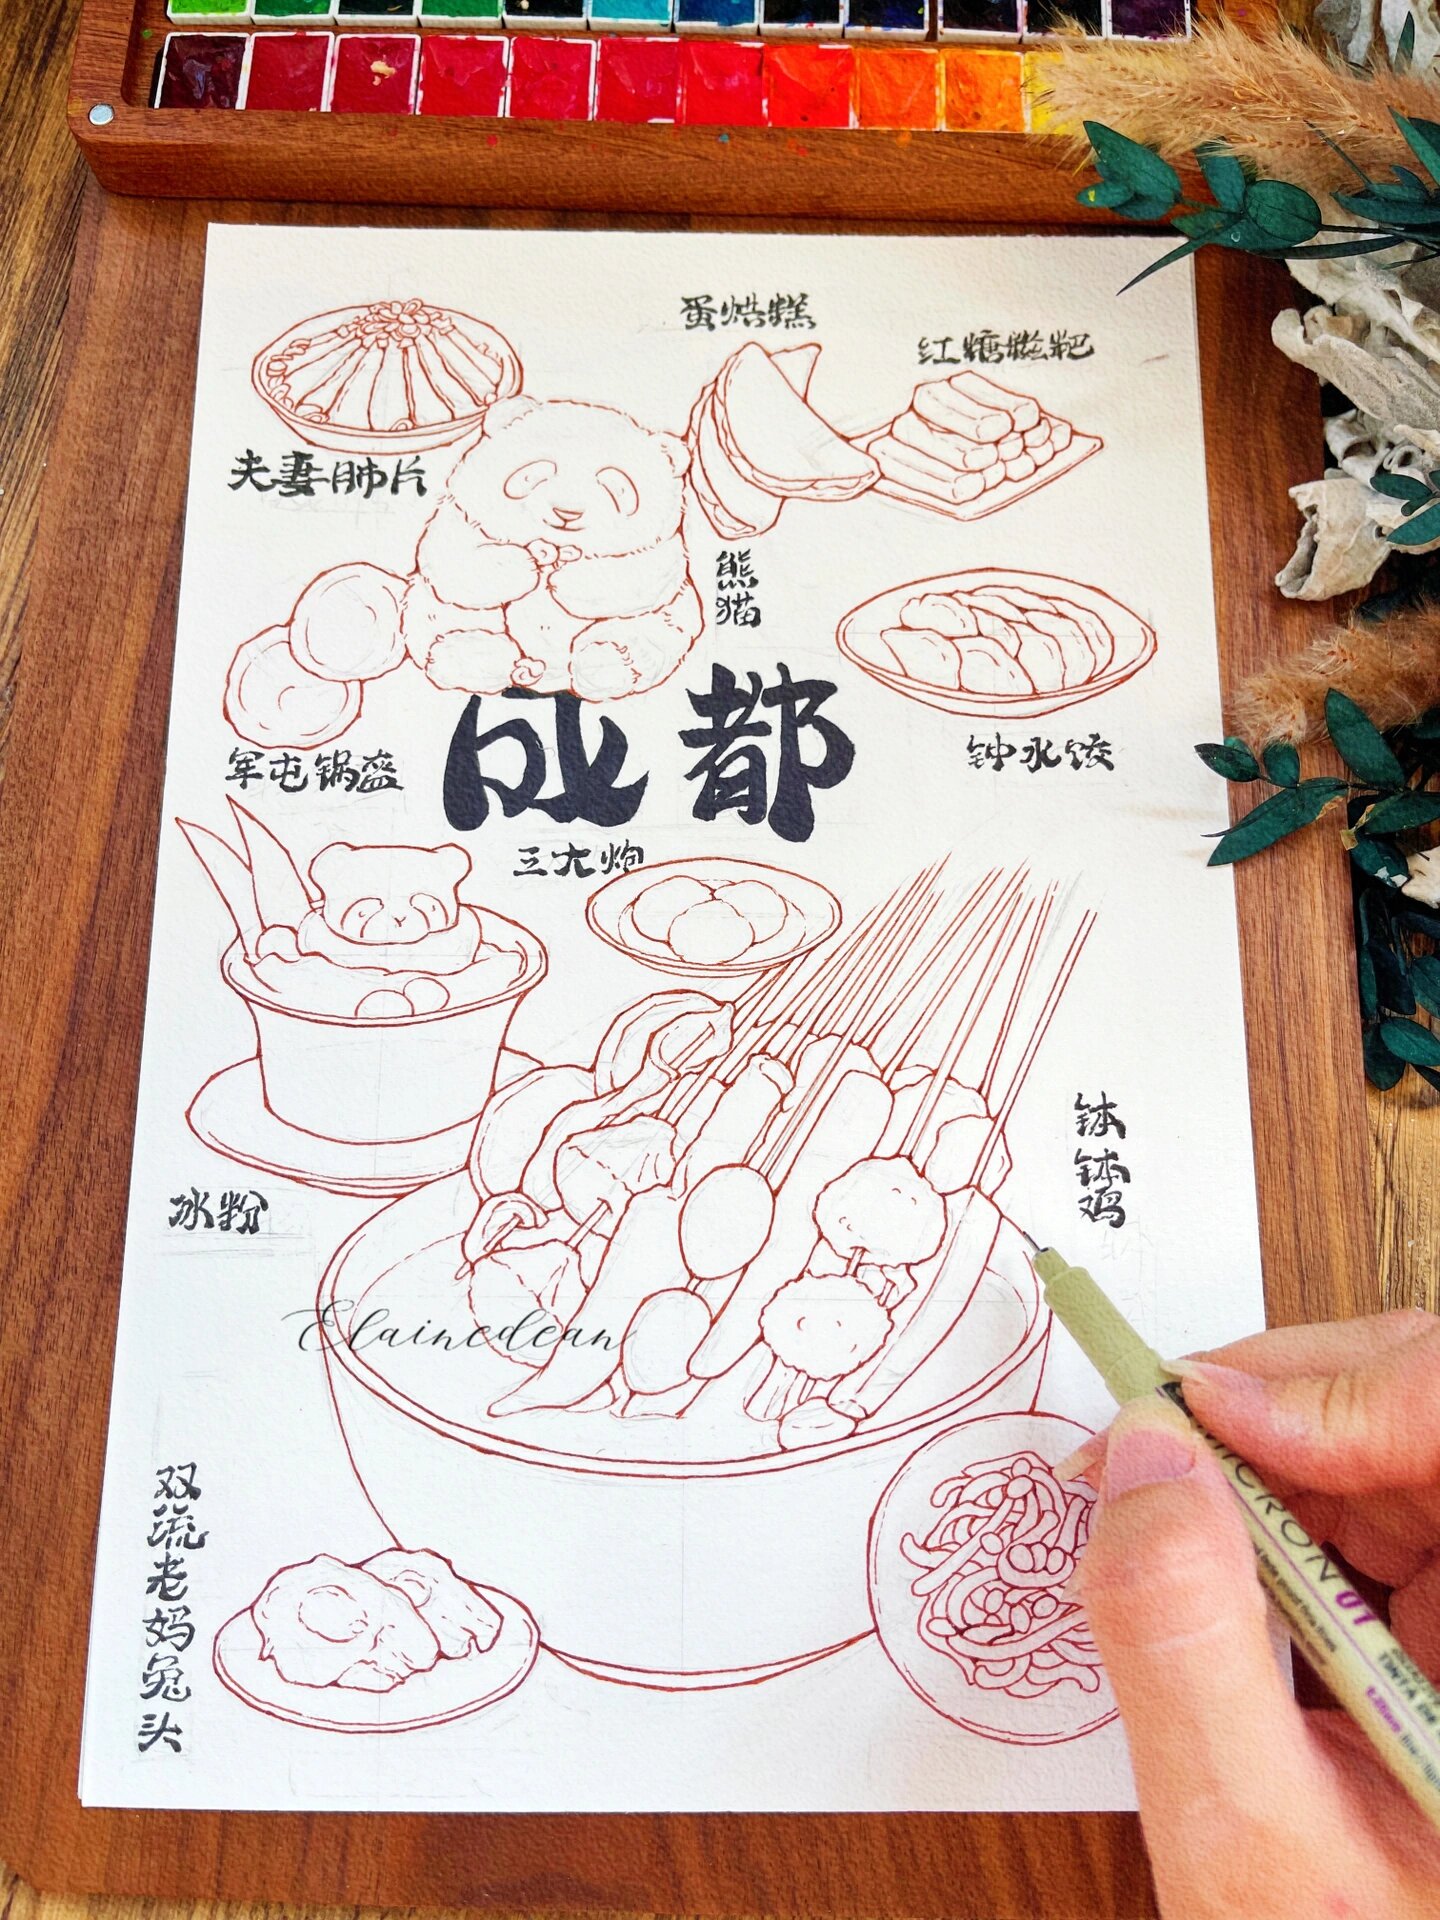 蛋烘糕
红糖糍粑
夫妻肺片
熊猫
军屯锅盔
成都
钟水饺
三大炮
钵钵鸡
冰粉
Elainedean
双流老妈兔头
MICRON 01